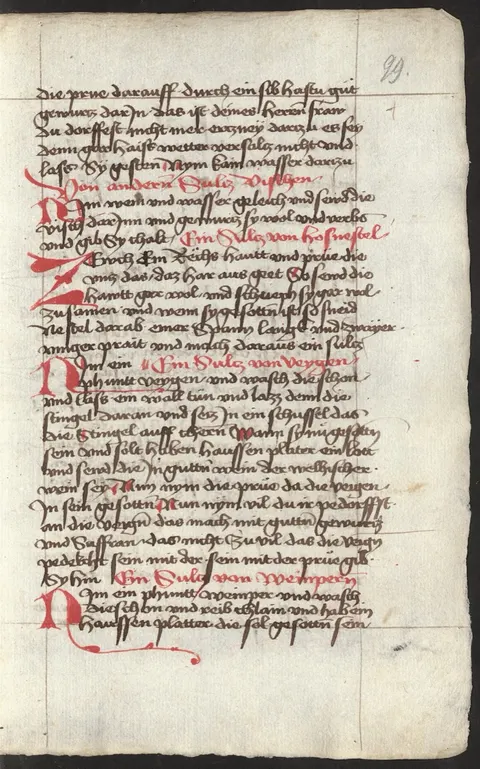 99.
die prue darauff durch ein sib hastu gut
gewurtz dar In das ist deines heren fraw
du dorffest nicht mer ertzney dartzu es sey
denn gar haist wetter versaltz nicht und
lass Sy gesten Nym kain wasser dartzu
Von andern Sultz vischen
Nim wein und wasser geleich und seud die
visch dar Inn und gewurtz sy wol und verbs
und gib Sy chalt Ein Sultz von hosnestel
Zeuch Ein Rechs hautt und prue die
untz das daz har aus geet So seud die
hawtt gar wol und schueph sy gar wol
zu samen und wenn sy gesotten ist so sneid
nestel darab einer Spann langk und zwayer
vinger prait und mach daraus ein sultz
Nim ein Ein Sultz von veygen
phuntt veygen und wasch die schon
und lass ein wall tun und lazz denn die
stingel daran und setz In ein schussel das
die Stingel auff chern Wann sy nu gesotten
sein und solt haben haussen plater ein lott
und seud die In guttn wein der welhischer
wein sey Nun nym die prue da die veigen
In sein gesotten Nun nym vil du ir pedorffst
an die veign das mach mit guttn gewurtz
und Saffran das nicht zu vil das die veign
pedekcht sein mit der sein mit der prue gib
Sy hin Ein Sultz von wempern
Nim ein phuntt wemper und wasch
die schon und reib chlain und hab ein
haussen platter die sol gesottn sein